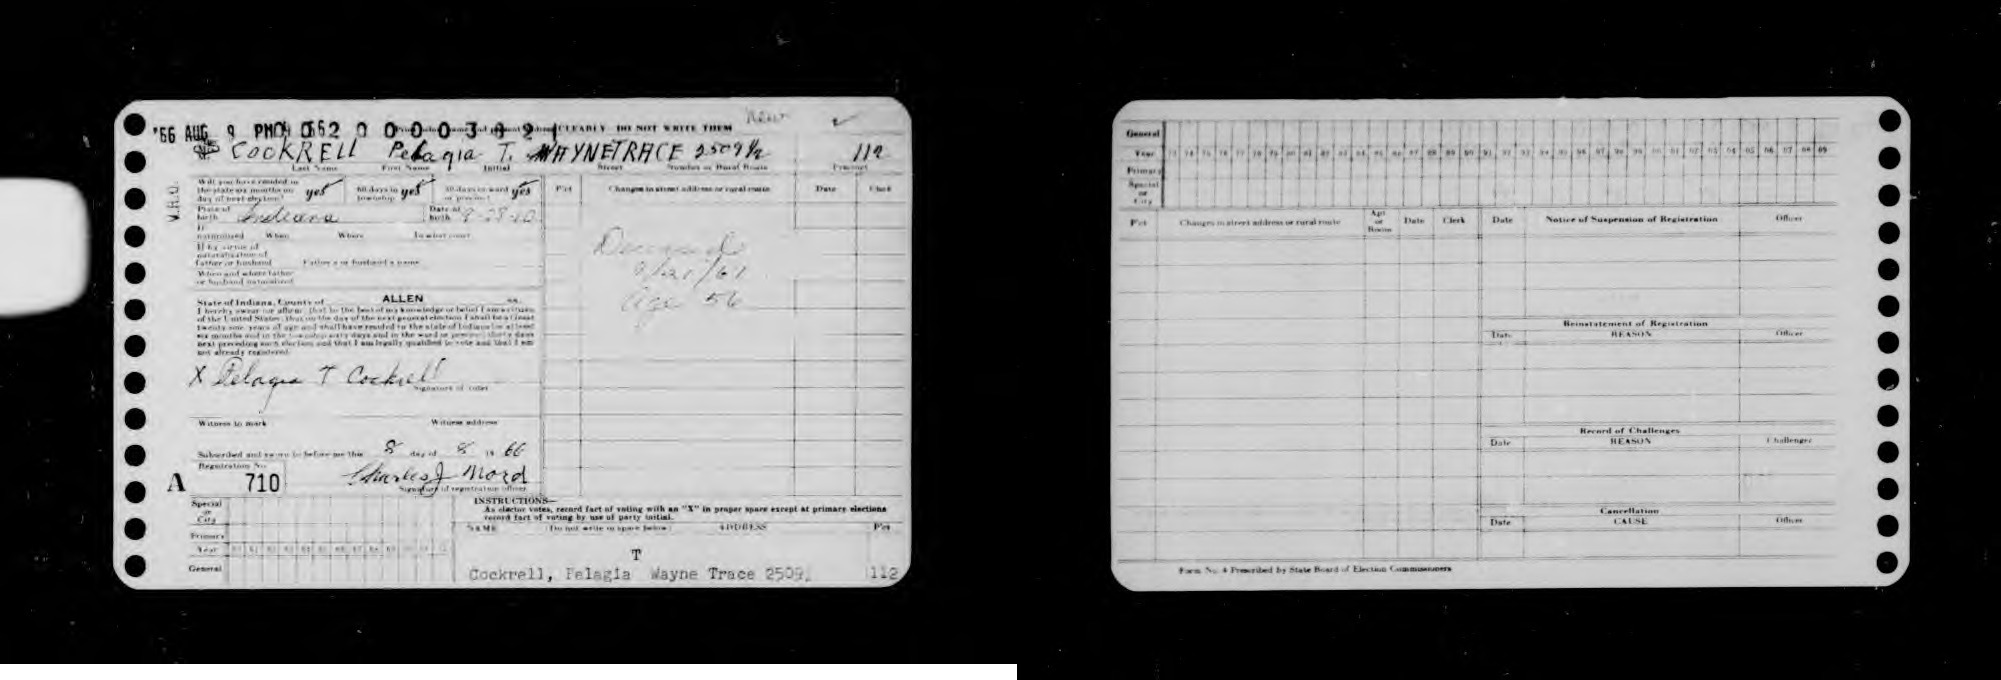 New
'66 AUG 9 PM 0 0 0 0 0 3 CLEARLY DO NOT WRITE THEM
COCKRELL Pelagia T. WAYNETRACE 2509½ 112
Last Name First Name Initial Street Number or Rural Route Precinct
V.R.O.
Will you have resided in
the state six months on yes 60 days in yes 30 days in ward yes
day of next election? township or precinct
Pct Changes in street address or rural route Date Clerk
Place of Date of
birth Indiana birth
If
naturalized When Where In what court
If by virtue of
naturalization of
father or husband Father's or husband's name
When and where father
or husband naturalized
Deceased
Age 56
State of Indiana, County of ALLEN ss.
I hereby swear (or affirm) that to the best of my knowledge or belief I am a citizen
of the United States, that on the day of the next general election I shall be at least
twenty one years of age and shall have resided in the state of Indiana for at least
six months and in the township sixty days and in the ward or precinct thirty days
next preceding such election and that I am legally qualified to vote and that I am
not already registered.
X Pelagia T Cockrell
Signature of voter
Witness to mark Witness address
Subscribed and sworn to before me this 8 day of 8 19 66
Registration No.
A 710 Charles J Mord
Signature of registration officer
Special
or
City
Primary
Year
General
INSTRUCTIONS—
As elector votes, record fact of voting with an "X" in proper space except at primary elections
record fact of voting by use of party initial.
NAME (Do not write in space below) ADDRESS Pct
T
Cockrell, Pelagia Wayne Trace 2509 112
General
Year 73 74 75 76 77 78 79 80 81 82 83 84 85 86 87 88 89 90 91 92 93 94 95 96 97 98 99 00 01 02 03 04 05 06 07 08 09
Primary
Special
or
City
Pct Changes in street address or rural route Apt or Room Date Clerk
Date Notice of Suspension of Registration Officer
Reinstatement of Registration
Date REASON Officer
Record of Challenges
Date REASON Challenger
Cancellation
Date CAUSE Officer
Form No. 4 Prescribed by State Board of Election Commissioners